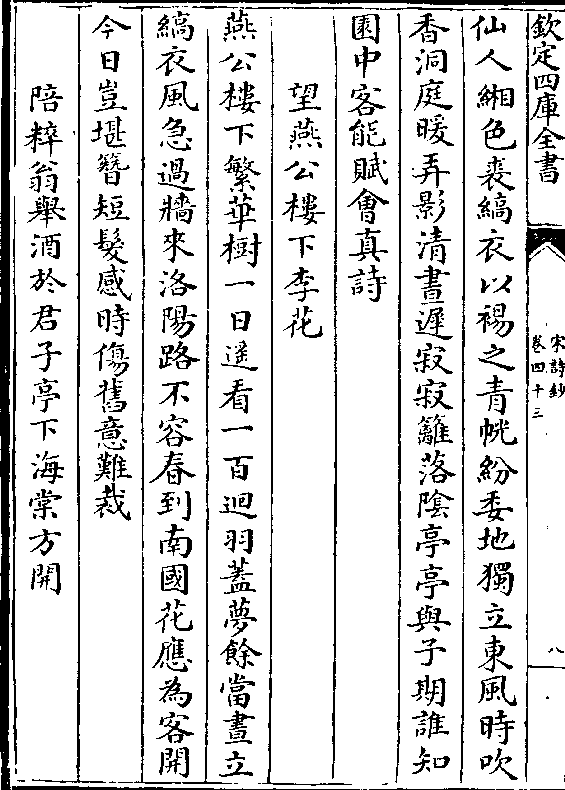 欽定四庫全書
宋詩鈔
卷四十三
八
仙人緗色裘縞衣以裼之青帨紛委地獨立東風時吹
香洞庭暖弄影清晝遲寂寂籬落陰亭亭與子期誰知
園中客能賦會真詩
望燕公樓下李花
燕公樓下繁華樹一日遥看一百迴羽蓋夢餘當晝立
縞衣風急過牆來洛陽路不容春到南國花應為客開
今日豈堪簪短髮感時傷舊意難裁
陪粹翁舉酒於君子亭下海棠方開